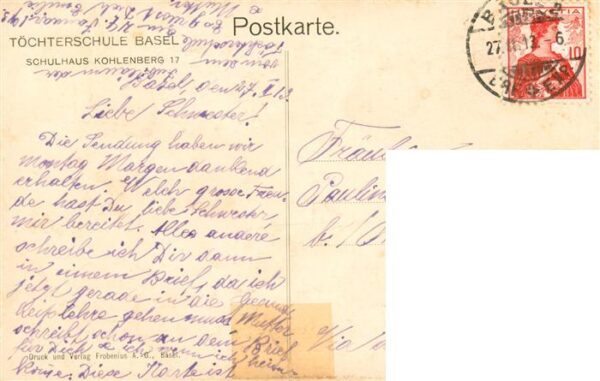 Postkarte.
TÖCHTERSCHULE BASEL
SCHULHAUS KOHLENBERG 17
Basel, den 27. 13.
Liebe Schwester!
Die Sendung haben wir
Montag Morgen dankend
erhalten. Welch grosse Freu-
de hast Du, liebe Schwester,
mir bereitet. Alles andere
schreibe ich Dir dann
in einem Brief, da ich
jetzt gerade in die
gehen muss. Mutter
schreibt schon an dem Brief
für Dich wenn ich heim
Druck und Verlag Frobenius A.-G., Basel.
komme. Diese Karte ist
von dem
Fräul
Paulin
b.
Via
BASEL 2
27. 13.-6
HELVETIA
10